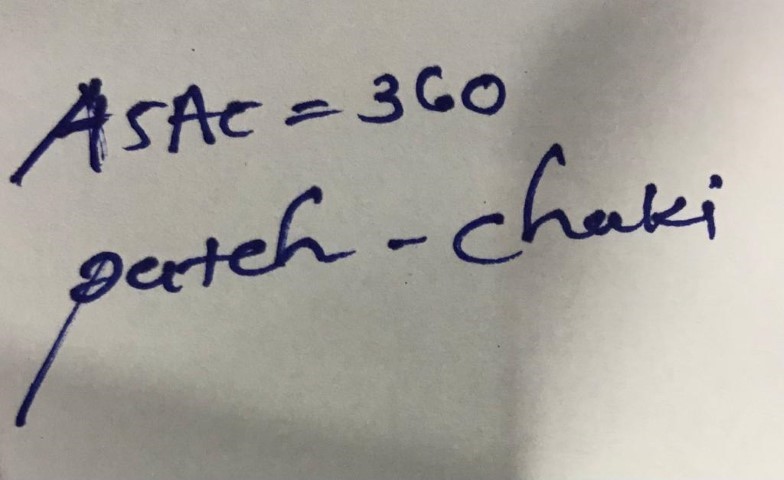 ASAC = 360
patch - chaki